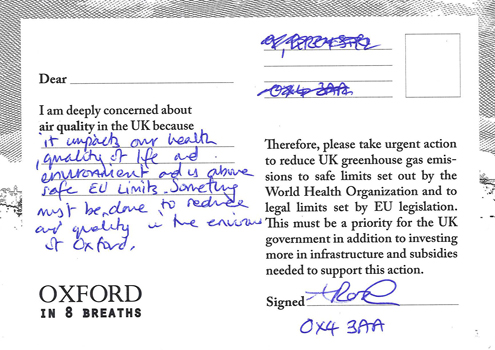 Dear
I am deeply concerned about
air quality in the UK because
it impacts our health
, quality of life ad
environment ad is above
safe EU limits. Something
must be done to reduce
and quality in the environ
of Oxford.
OXFORD
IN 8 BREATHS
OX4 3AA
Therefore, please take urgent action
to reduce UK greenhouse gas emis-
sions to safe limits set out by the
World Health Organization and to
legal limits set by EU legislation.
This must be a priority for the UK
government in addition to investing
more in infrastructure and subsidies
needed to support this action.
Signed
OX4 3AA